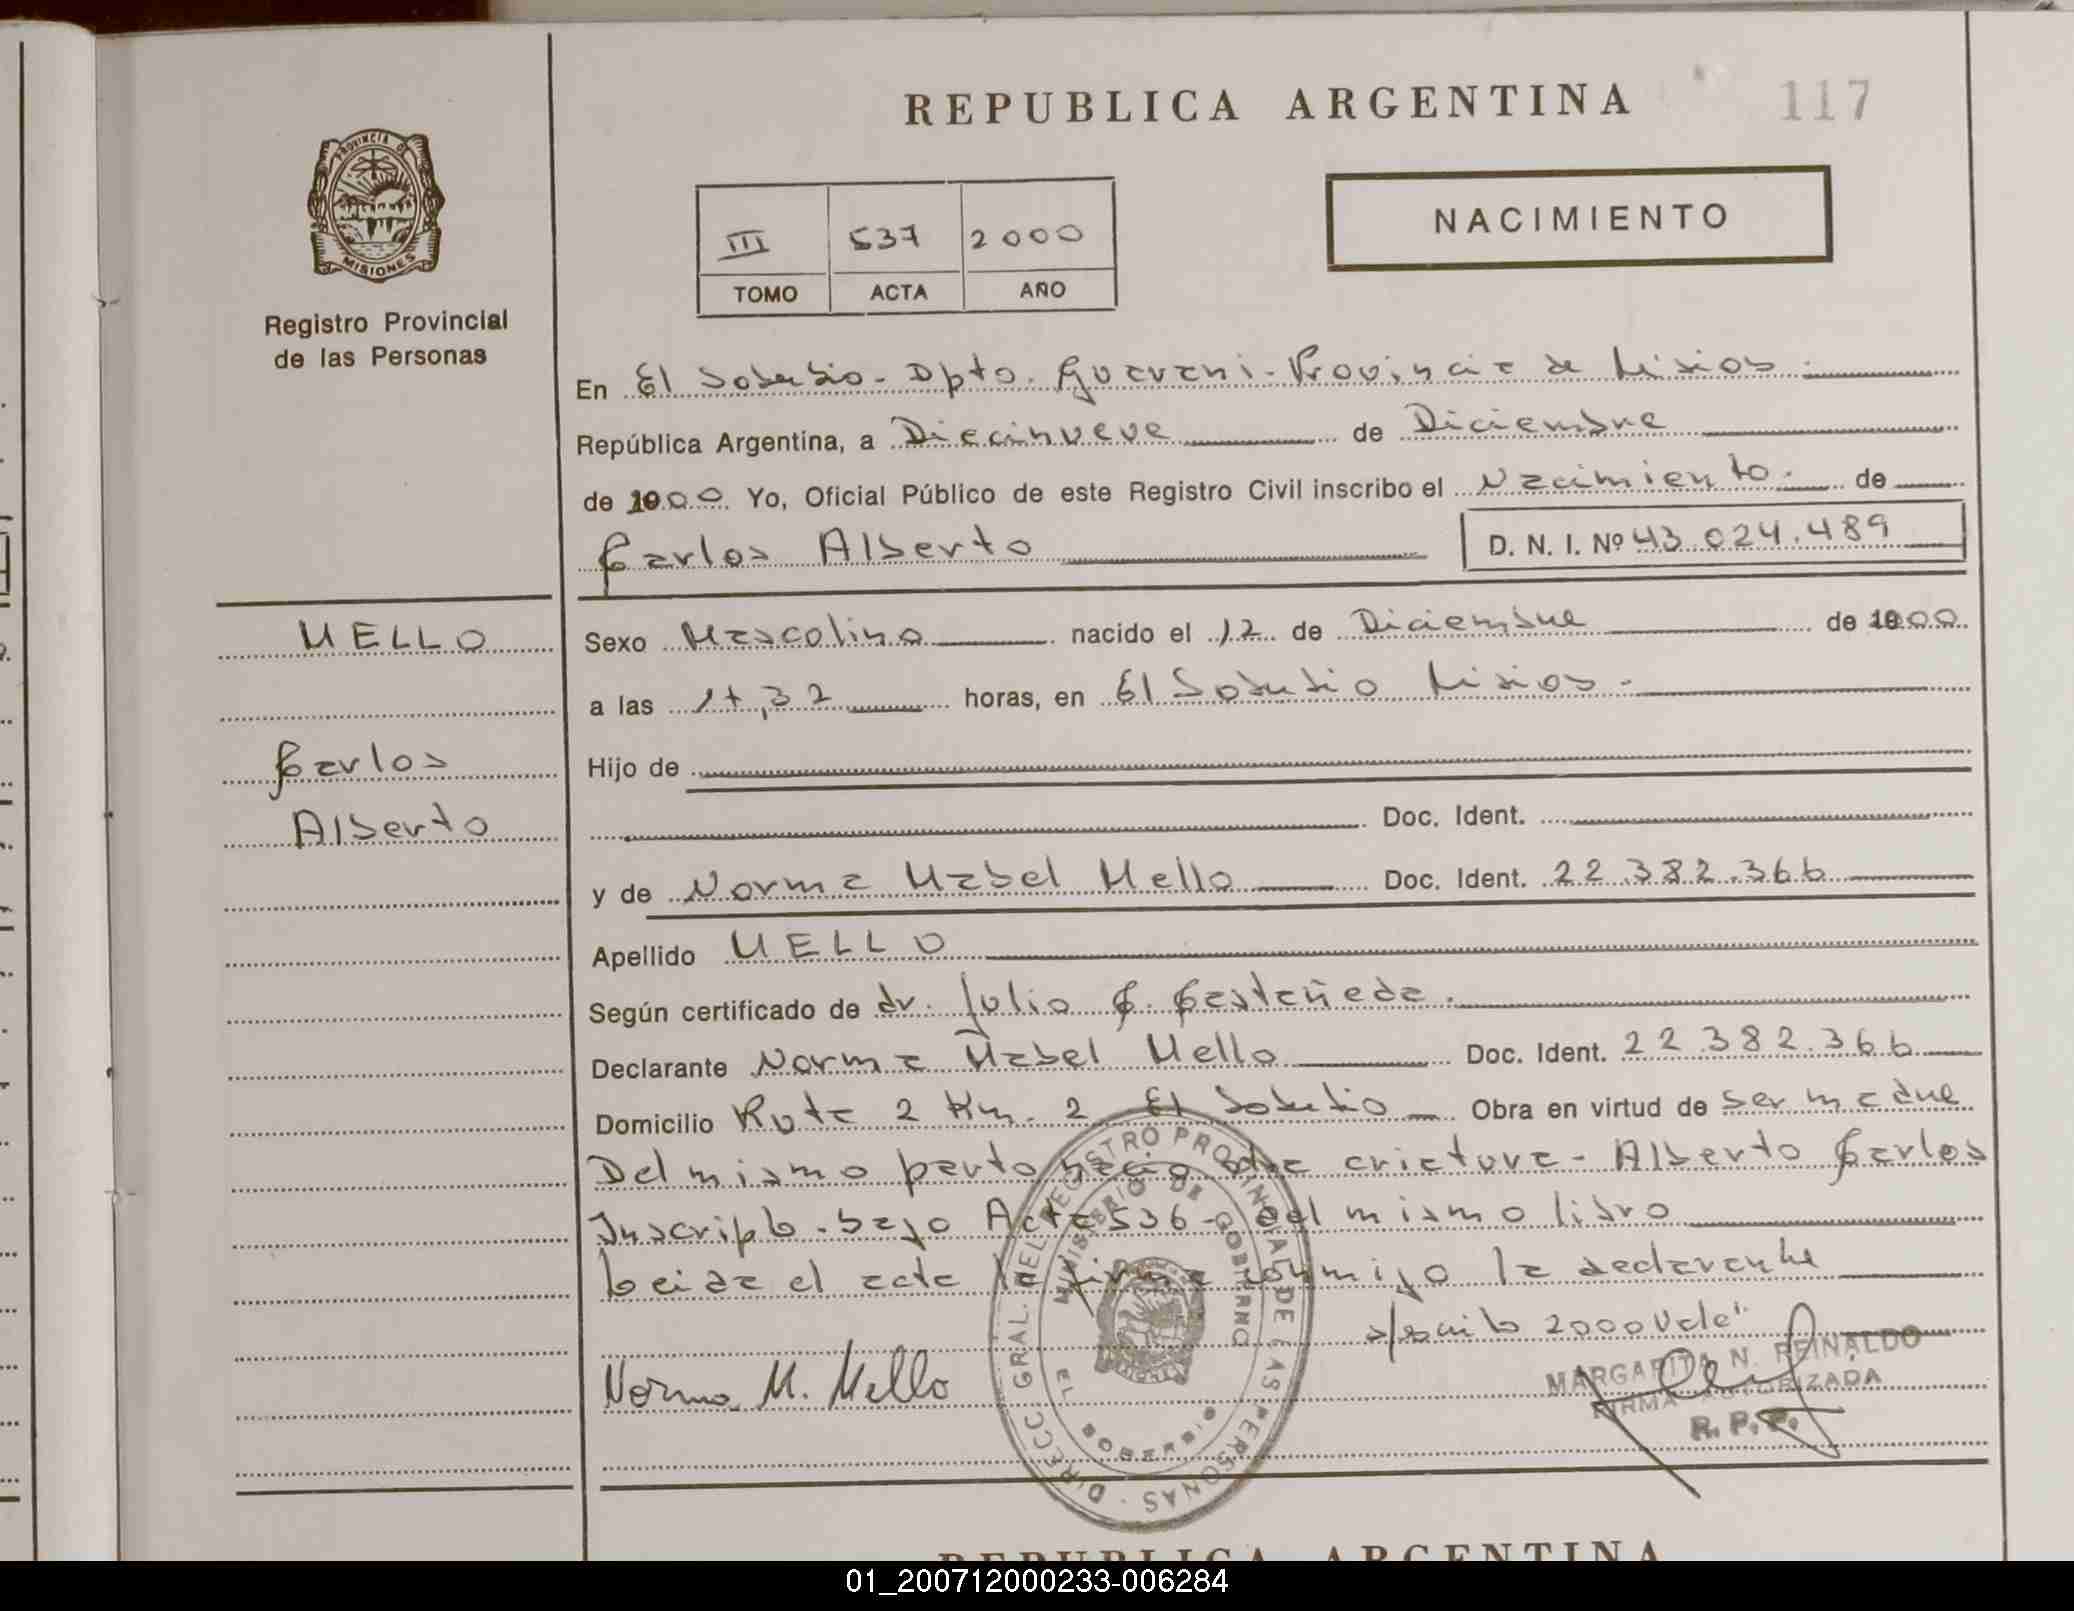 REPUBLICA ARGENTINA
117
PROVINCIA DE
MISIONES
Registro Provincial
de las Personas
III 537 2000
TOMO ACTA AÑO
NACIMIENTO
En El Soberbio - Dpto. Guarani - Provincia de Misios.
República Argentina, a Diecinueve de Diciembre
de 2000. Yo, Oficial Público de este Registro Civil inscribo el Nacimiento. de
Carlos Alberto
D. N. I. Nº 43.024.489
MELLO
Carlos
Alberto
Sexo Mascolino nacido el 12 de Diciembre de 2000.
a las horas, en El Soberbio Misios.
Hijo de
Doc. Ident.
y de Norma Mabel Mello Doc. Ident. 22.382.366
Apellido MELLO
Según certificado de dr. Julio C. Castañeda.
Declarante Norma Mabel Mello Doc. Ident. 22.382.366
Domicilio Ruta 2 Km. 2 El Soberbio Obra en virtud de ser madre
Del mismo parto nacio otra criatura - Alberto Carlos
Inscripto - bajo Acta 536 - del mismo libro
Leida el acta la firma conmigo la declarante
s/escrito 2000 Vale.
Norma M. Mello
MARGARITA N. REINALDO
FIRMA AUTORIZADA
R. P. P.
DIRECC. GRAL. DEL REGISTRO PROVINCIAL DE LAS PERSONAS
MINISTERIO DE GOBIERNO
EL SOBERBIO
REPUBLICA ARGENTINA
01_200712000233-006284